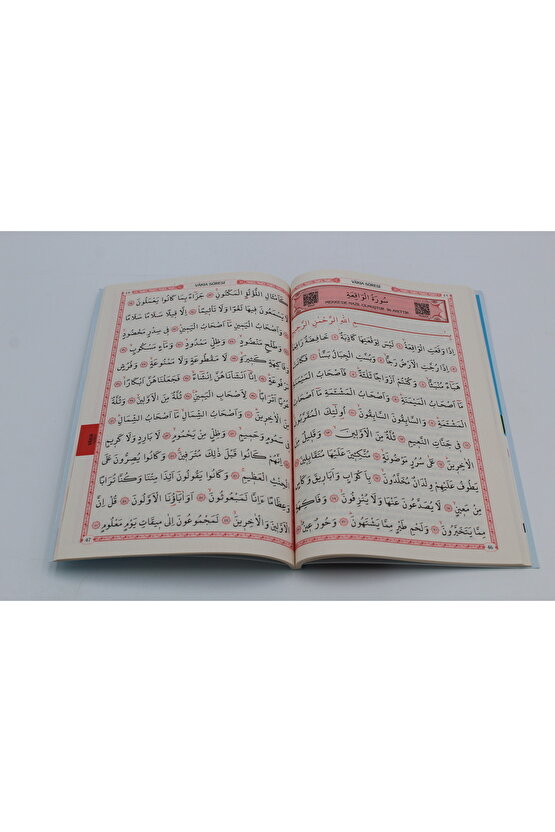 VÂKIA SÛRESİ
سُورَةُ الْوَاقِعَةِ
MEKKE'DE NAZİL OLMUŞTUR. 96 AYETTİR
اللّٰهِ الرَّحْمٰنِ الرَّحِيمِ
اِذَا وَقَعَتِ الْوَاقِعَةُ لَيْسَ لِوَقْعَتِهَا كَاذِبَةٌ خَافِضَةٌ
اِذَا رُجَّتِ الْاَرْضُ رَجًّا وَبُسَّتِ الْجِبَالُ بَسًّا
هَبَٓاءً مُنْبَثًّا وَكُنْتُمْ اَزْوَاجًا ثَلٰثَةً فَاَصْحَابُ الْمَيْمَنَةِ
مَٓا اَصْحَابُ الْمَيْمَنَةِ وَاَصْحَابُ الْمَشْـَٔمَةِ مَٓا اَصْحَابُ
الْمَشْـَٔمَةِ وَالسَّابِقُونَ السَّابِقُونَ اُولٰٓئِكَ الْمُقَرَّبُونَ
فِي جَنَّاتِ النَّعِيمِ ثُلَّةٌ مِنَ الْاَوَّلِينَ وَقَلِيلٌ مِنَ
الْاٰخِرِينَ عَلٰى سُرُرٍ مَوْضُونَةٍ مُتَّكِـِٔينَ عَلَيْهَا مُتَقَابِلِينَ
يَطُوفُ عَلَيْهِمْ وِلْدَانٌ مُخَلَّدُونَ بِاَكْوَابٍ وَاَبَارِيقَ وَكَأْسٍ
مِنْ مَعِينٍ لَا يُصَدَّعُونَ عَنْهَا وَلَا يُنْزِفُونَ وَفَاكِهَةٍ
مِمَّا يَتَخَيَّرُونَ وَلَحْمِ طَيْرٍ مِمَّا يَشْتَهُونَ وَحُورٌ عِينٌ
46
VÂKIA SÛRESİ
كَاَمْثَالِ اللُّؤْلُؤِ الْمَكْنُونِ جَزَٓاءً بِمَا كَانُوا يَعْمَلُونَ
لَا يَسْمَعُونَ فِيهَا لَغْوًا وَلَا تَأْثِيمًا اِلَّا قِيلًا سَلَامًا سَلَامًا
وَاَصْحَابُ الْيَمِينِ مَٓا اَصْحَابُ الْيَمِينِ فِي سِدْرٍ مَخْضُودٍ
وَطَلْحٍ مَنْضُودٍ وَظِلٍّ مَمْدُودٍ وَمَٓاءٍ مَسْكُوبٍ
وَفَاكِهَةٍ كَثِيرَةٍ لَا مَقْطُوعَةٍ وَلَا مَمْنُوعَةٍ وَفُرُشٍ
مَرْفُوعَةٍ اِنَّٓا اَنْشَأْنَاهُنَّ اِنْشَٓاءً فَجَعَلْنَاهُنَّ اَبْكَارًا
عُرُبًا اَتْرَابًا لِاَصْحَابِ الْيَمِينِ ثُلَّةٌ مِنَ الْاَوَّلِينَ وَثُلَّةٌ
مِنَ الْاٰخِرِينَ وَاَصْحَابُ الشِّمَالِ مَٓا اَصْحَابُ الشِّمَالِ
فِي سَمُومٍ وَحَمِيمٍ وَظِلٍّ مِنْ يَحْمُومٍ لَا بَارِدٍ وَلَا كَرِيمٍ
اِنَّهُمْ كَانُوا قَبْلَ ذٰلِكَ مُتْرَفِينَ وَكَانُوا يُصِرُّونَ عَلَى
الْحِنْثِ الْعَظِيمِ وَكَانُوا يَقُولُونَ اَئِذَا مِتْنَا وَكُنَّا تُرَابًا
وَعِظَامًا ءَاِنَّا لَمَبْعُوثُونَ اَوَاٰبَٓاؤُنَا الْاَوَّلُونَ قُلْ اِنَّ
الْاَوَّلِينَ وَالْاٰخِرِينَ لَمَجْمُوعُونَ اِلٰى مِيقَاتِ يَوْمٍ مَعْلُومٍ
47